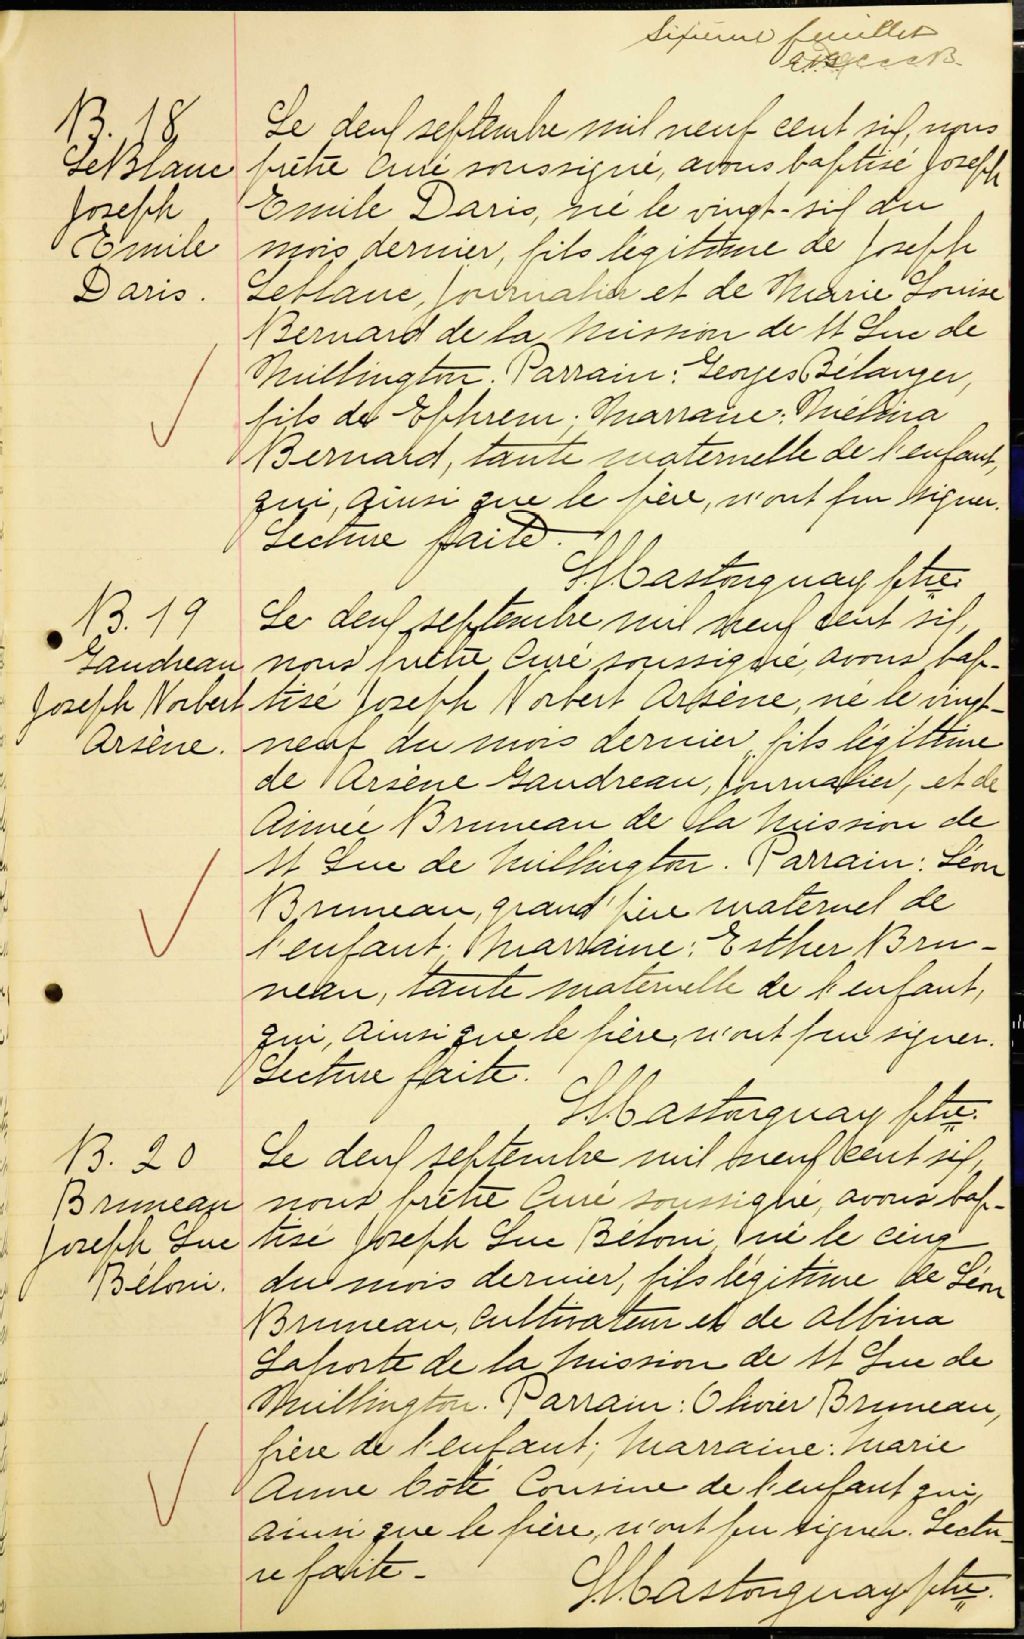 Sixième feuillet
B. 18
LeBlanc
Joseph
Emile
Daris.
Le deux septembre mil neuf cent six, nous
prêtre curé soussigné, avons baptisé Joseph
Emile Daris, né le vingt-six du
mois dernier, fils légitime de Joseph
Leblanc, journalier et de Marie Louise
Bernard de la mission de St Luc de
Millington. Parrain: Georges Bélanger,
fils de Ephrem; Marraine: Mélina
Bernard, tante maternelle de l'enfant,
qui, ainsi que le père, n'ont pu signer.
Lecture faite.
Mastonguay ptre.
B. 19
Gaudreau
Joseph Norbert
Arsène.
Le deux septembre mil neuf cent six,
nous prêtre curé soussigné, avons bap-
tisé Joseph Norbert Arsène, né le vingt-
neuf du mois dernier, fils légitime
de Arsène Gaudreau, journalier, et de
Aimée Bruneau de la mission de
St Luc de Millington. Parrain: Léon
Bruneau, grand'père maternel de
l'enfant; Marraine: Esther Bru-
neau, tante maternelle de l'enfant,
qui, ainsi que le père, n'ont pu signer.
Lecture faite.
Mastonguay ptre.
B. 20
Bruneau
Joseph Luc
Béloni.
Le deux septembre mil neuf cent six,
nous prêtre curé soussigné, avons bap-
tisé Joseph Luc Béloni, né le cinq
du mois dernier, fils légitime de Léon
Bruneau, cultivateur et de Albina
Laporte de la mission de St Luc de
Millington. Parrain: Olivier Bruneau,
frère de l'enfant; Marraine: Marie
Anne Côté cousine de l'enfant qui,
ainsi que le père, n'ont pu signer. Lectu-
re faite -
Mastonguay ptre.